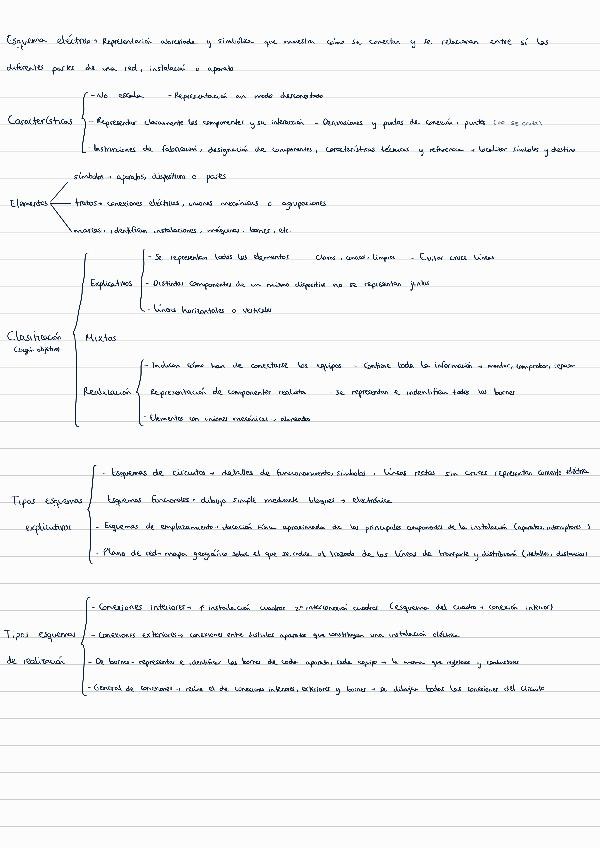 Esquema eléctrico → Representación abreviada y simbólica que muestra cómo se conectan y se relacionan entre sí las
diferentes partes de una red, instalación o aparato
- No escala - Representación en modo desconectado
Características - Representar claramente los componentes y su interacción - Derivaciones y puntos de conexión, puntos (no se cruza)
Instrucciones de fabricación, designación de componentes, características técnicas y referencia → localizar símbolos y destino
símbolos → aparatos, dispositivos o partes
Elementos trazos → conexiones eléctricas, uniones mecánicas o agrupaciones
marcas → identifican instalaciones, máquinas, bornes, etc.
- Se representan todos los elementos Claros, concisos, limpios - Evitar cruce líneas
Explicativos - Distintos componentes de un mismo dispositivo no se representan juntos
- Líneas horizontales o verticales
Clasificación Mixtos
(según objetivo)
- Indican cómo han de conectarse los equipos - Contiene toda la información → montar, comprobar, reparar
Realización Representación de componentes realista Se representan e indentifican todos los bornes
- Elementos con uniones mecánicas, alineados
- Esquemas de circuitos → detalles de funcionamiento, símbolos, líneas rectas sin cruces representan corriente eléctrica
Tipos esquemas Esquemas funcionales → dibujo simple mediante bloques → electrónica
explicativos - Esquemas de emplazamiento → ubicación física aproximada de los principales componentes de la instalación (aparatos, interruptores)
- Plano de red → mapa geográfico sobre el que se indica el trazado de las líneas de transporte y distribución (detalles, distancias)
- Conexiones interiores → 1º instalación cuadros 2º interconexión cuadros (esquema del cuadro → conexión interior)
Tipos esquemas - Conexiones exteriores → conexiones entre distintos aparatos que constituyen una instalación eléctrica
de realización - De bornes → representar e identificar los bornes de cada aparato, cada equipo → la marca que regletas y conductores
- General de conexiones → reúne el de conexiones interiores, exteriores y bornes → se dibujan todas las conexiones del circuito